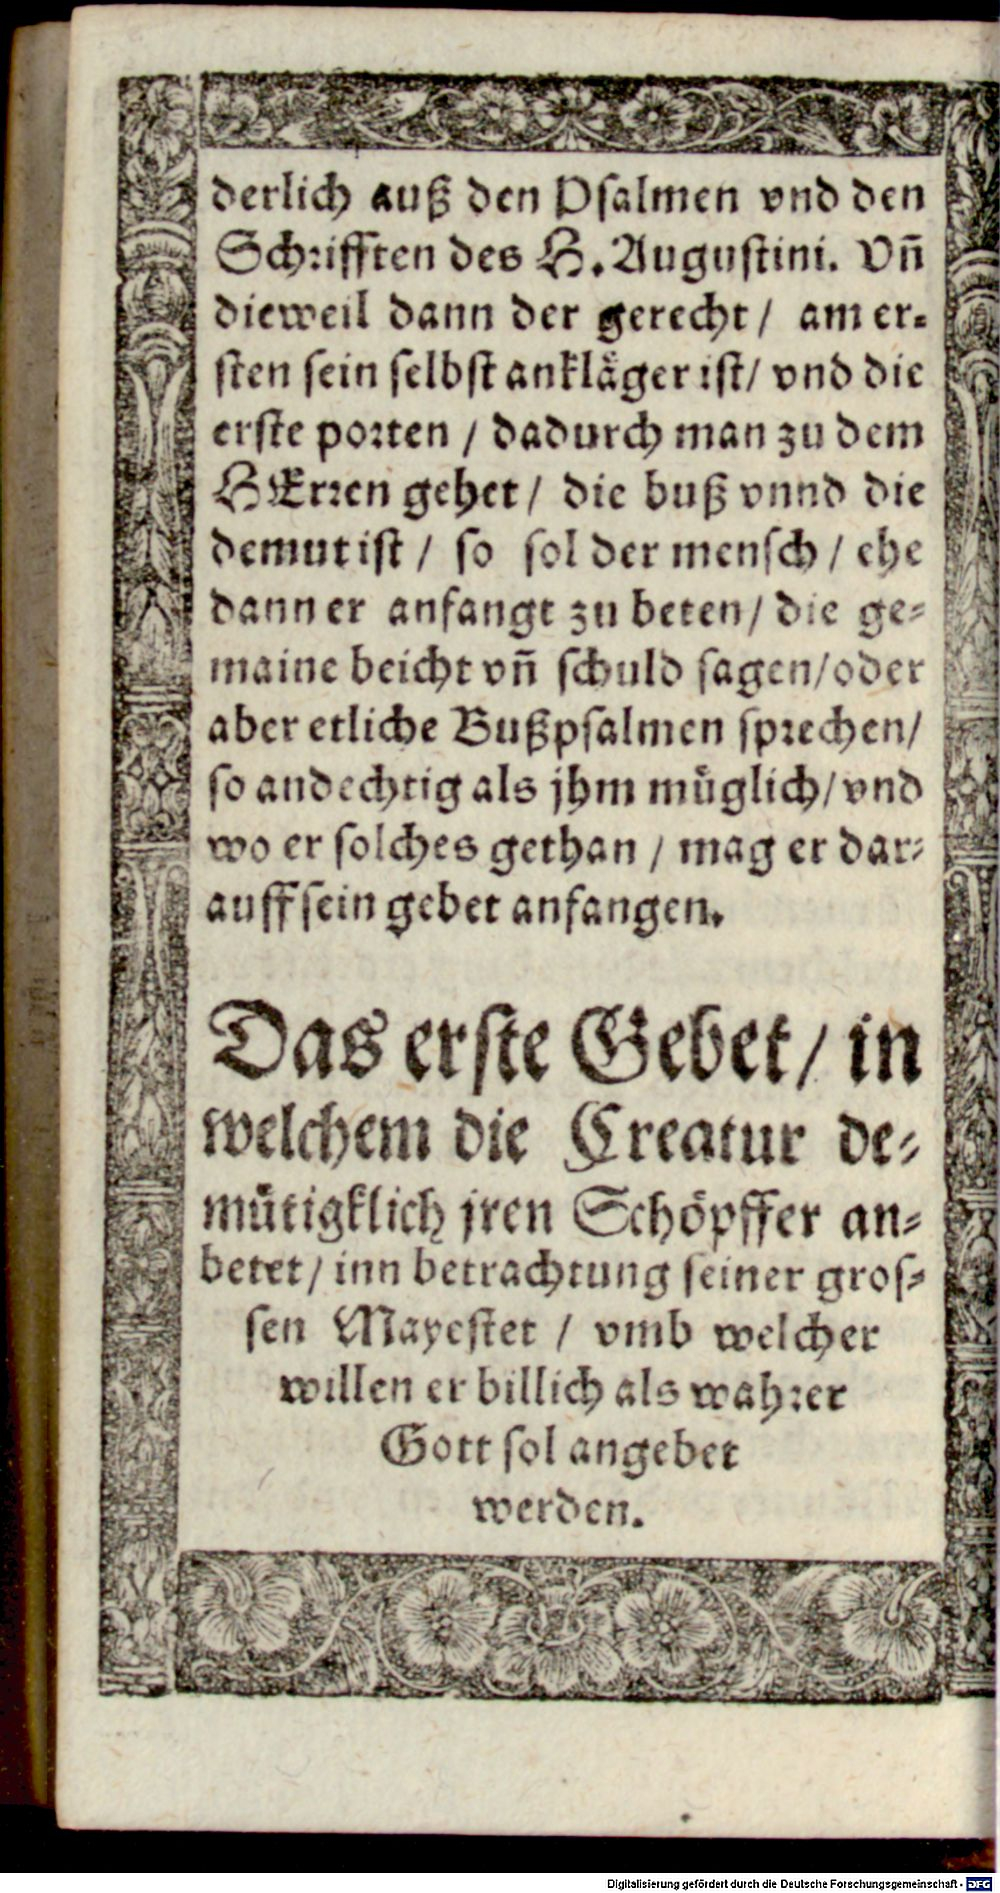 derlich auß den Psalmen vnd den
Schrifften des H. Augustini. Vñ
dieweil dann der gerecht / am er-
sten sein selbst ankläger ist / vnd die
erste porten / dadurch man zu dem
HErren gehet / die buß vnnd die
demut ist / so sol der mensch / ehe
dann er anfangt zu beten / die ge-
maine beicht vñ schuld sagen / oder
aber etliche Bußpsalmen sprechen /
so andechtig als jhm müglich / vnd
wo er solches gethan / mag er dar-
auff sein gebet anfangen.
Das erste Gebet / in
welchem die Creatur de-
mütigklich jren Schöpffer an-
betet / inn betrachtung seiner gros-
sen Mayestet / vmb welcher
willen er billich als wahrer
Gott sol angebet
werden.
Digitalisierung gefördert durch die Deutsche Forschungsgemeinschaft - DFG